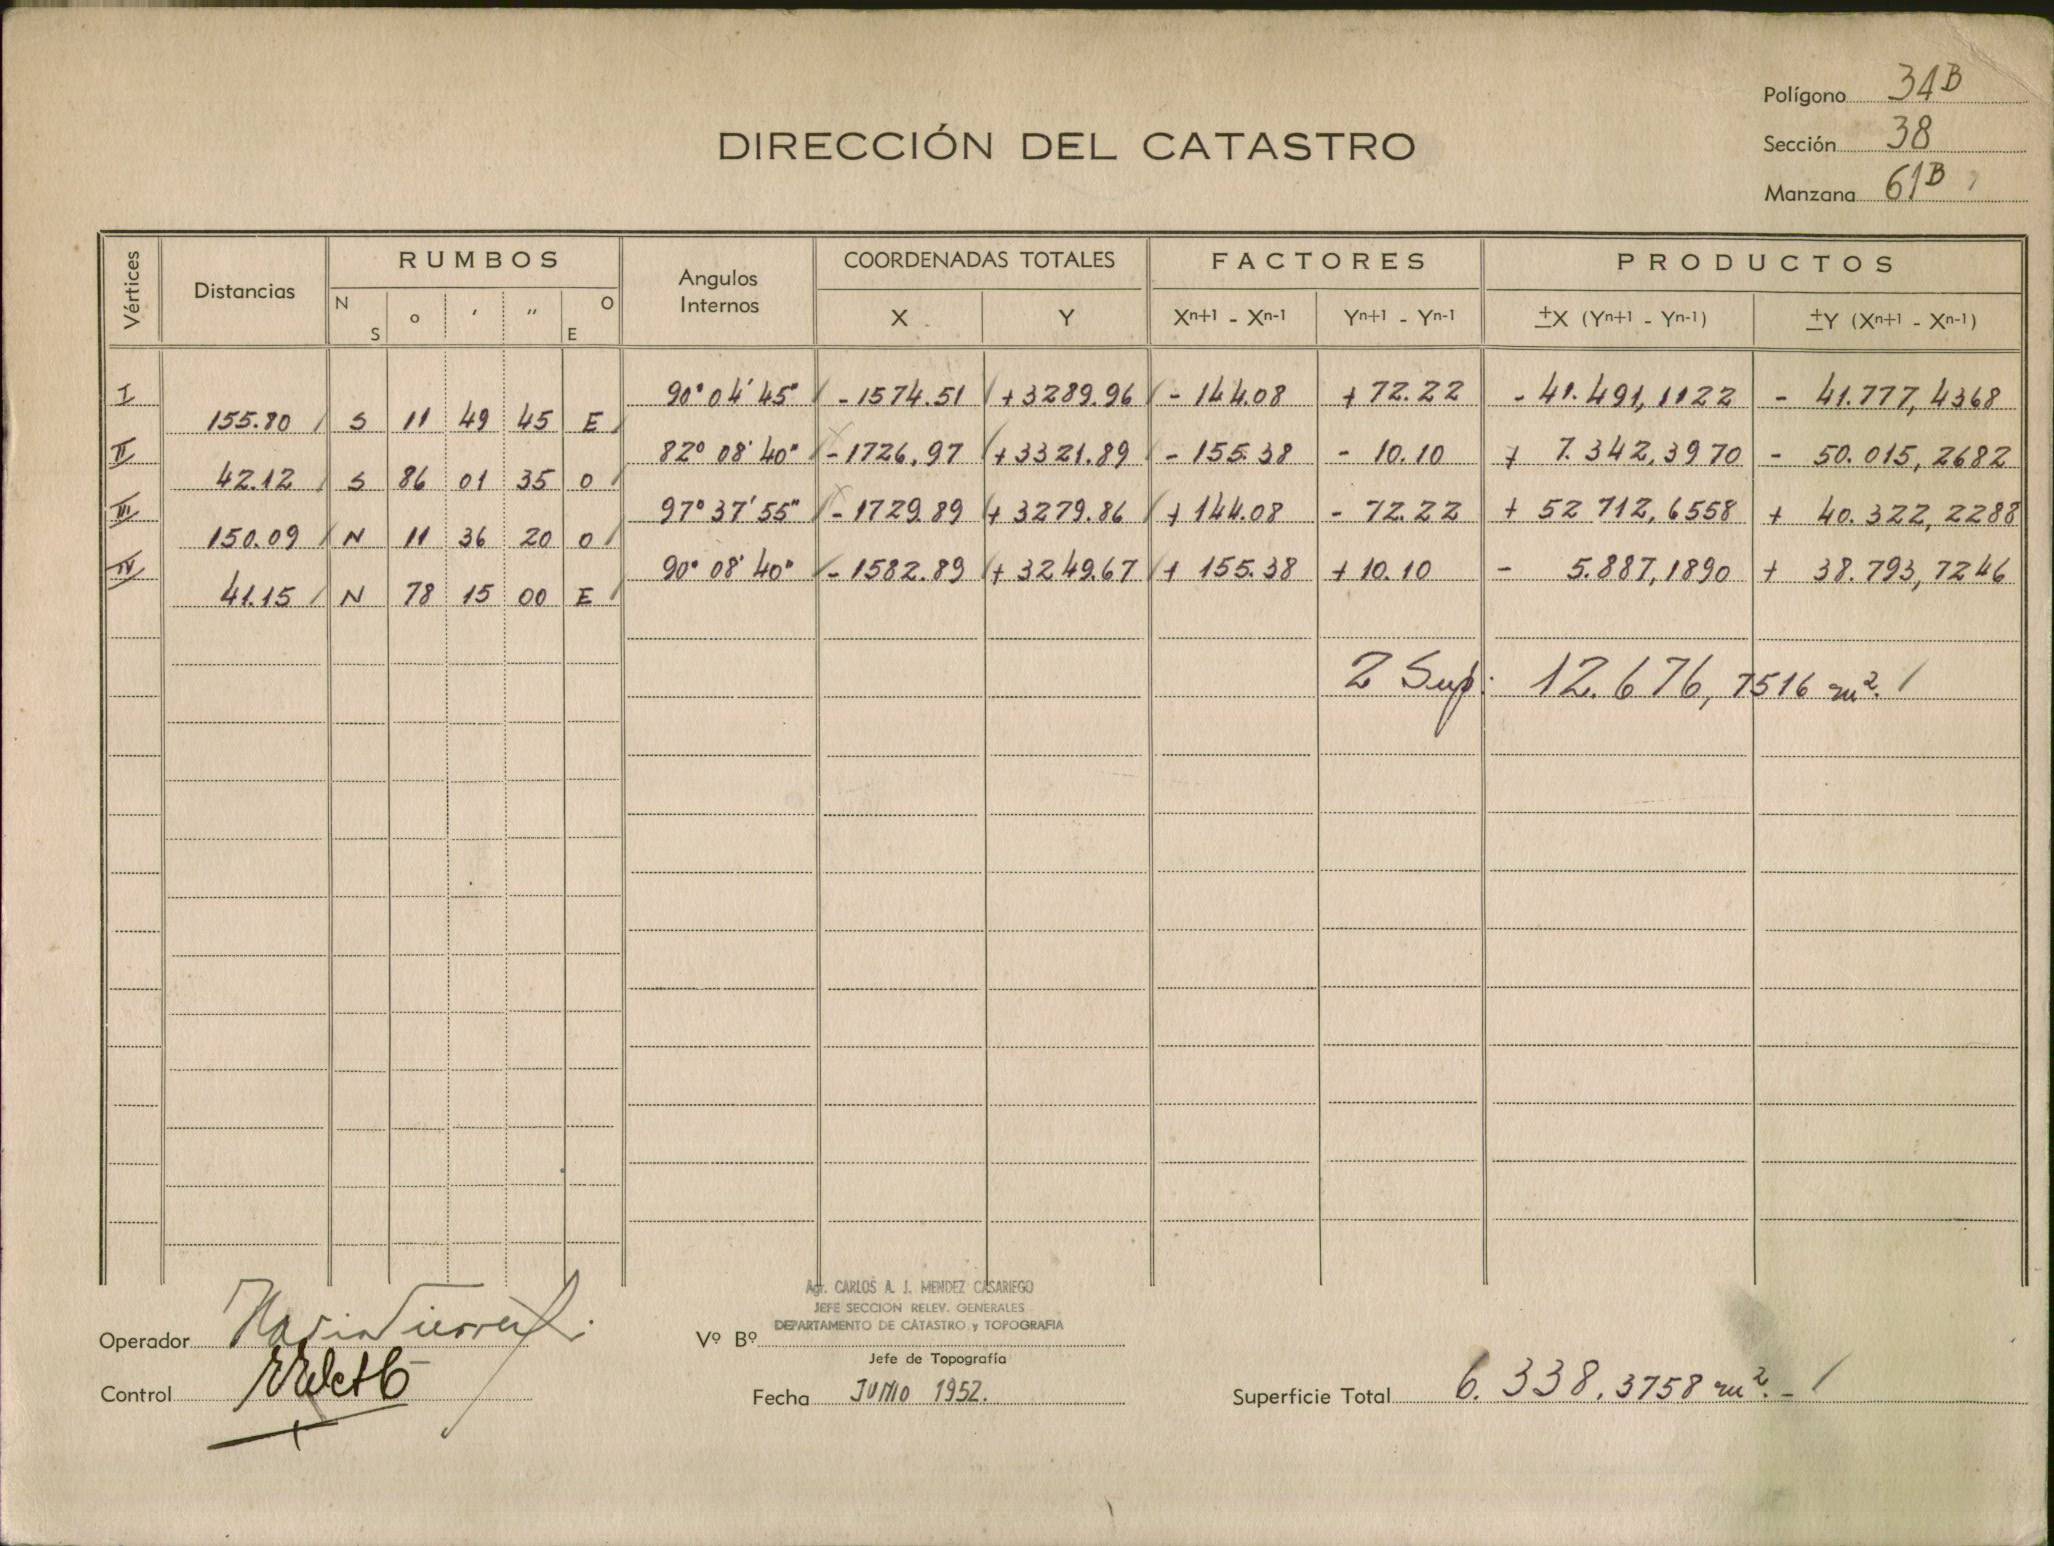 Polígono 34B
DIRECCIÓN DEL CATASTRO
Sección 38
Manzana 61B
Vértices Distancias RUMBOS Angulos Internos COORDENADAS TOTALES FACTORES PRODUCTOS
N S o ' " O E X Y Xn+1 - Xn-1 Yn+1 - Yn-1 ±X (Yn+1 - Yn-1) ±Y (Xn+1 - Xn-1)
I 90° 04' 45" - 1574.51 + 3289.96 - 144.08 + 72.22 - 41.491,1122 - 41.777,4368
155.80 S 11 49 45 E
II 82° 08' 40" - 1726.97 + 3321.89 - 155.38 - 10.10 + 7.342,3970 - 50.015,2682
42.12 S 86 01 35 O
III 97° 37' 55" - 1729.89 + 3279.86 + 144.08 - 72.22 + 52 712,6558 + 40.322,2288
150.09 N 11 36 20 O
IV 90° 08' 40" - 1582.89 + 3249.67 + 155.38 + 10.10 - 5.887,1890 + 38.793,7246
41.15 N 78 15 00 E
2 Sup: 12.676,7516 m².
Agr. CARLOS A. J. MENDEZ CASARIEGO
JEFE SECCION RELEV. GENERALES
DEPARTAMENTO DE CATASTRO y TOPOGRAFIA
Operador
Vº Bº
Jefe de Topografía
Control
Fecha JUNIO 1952.
Superficie Total 6.338.3758 m².-